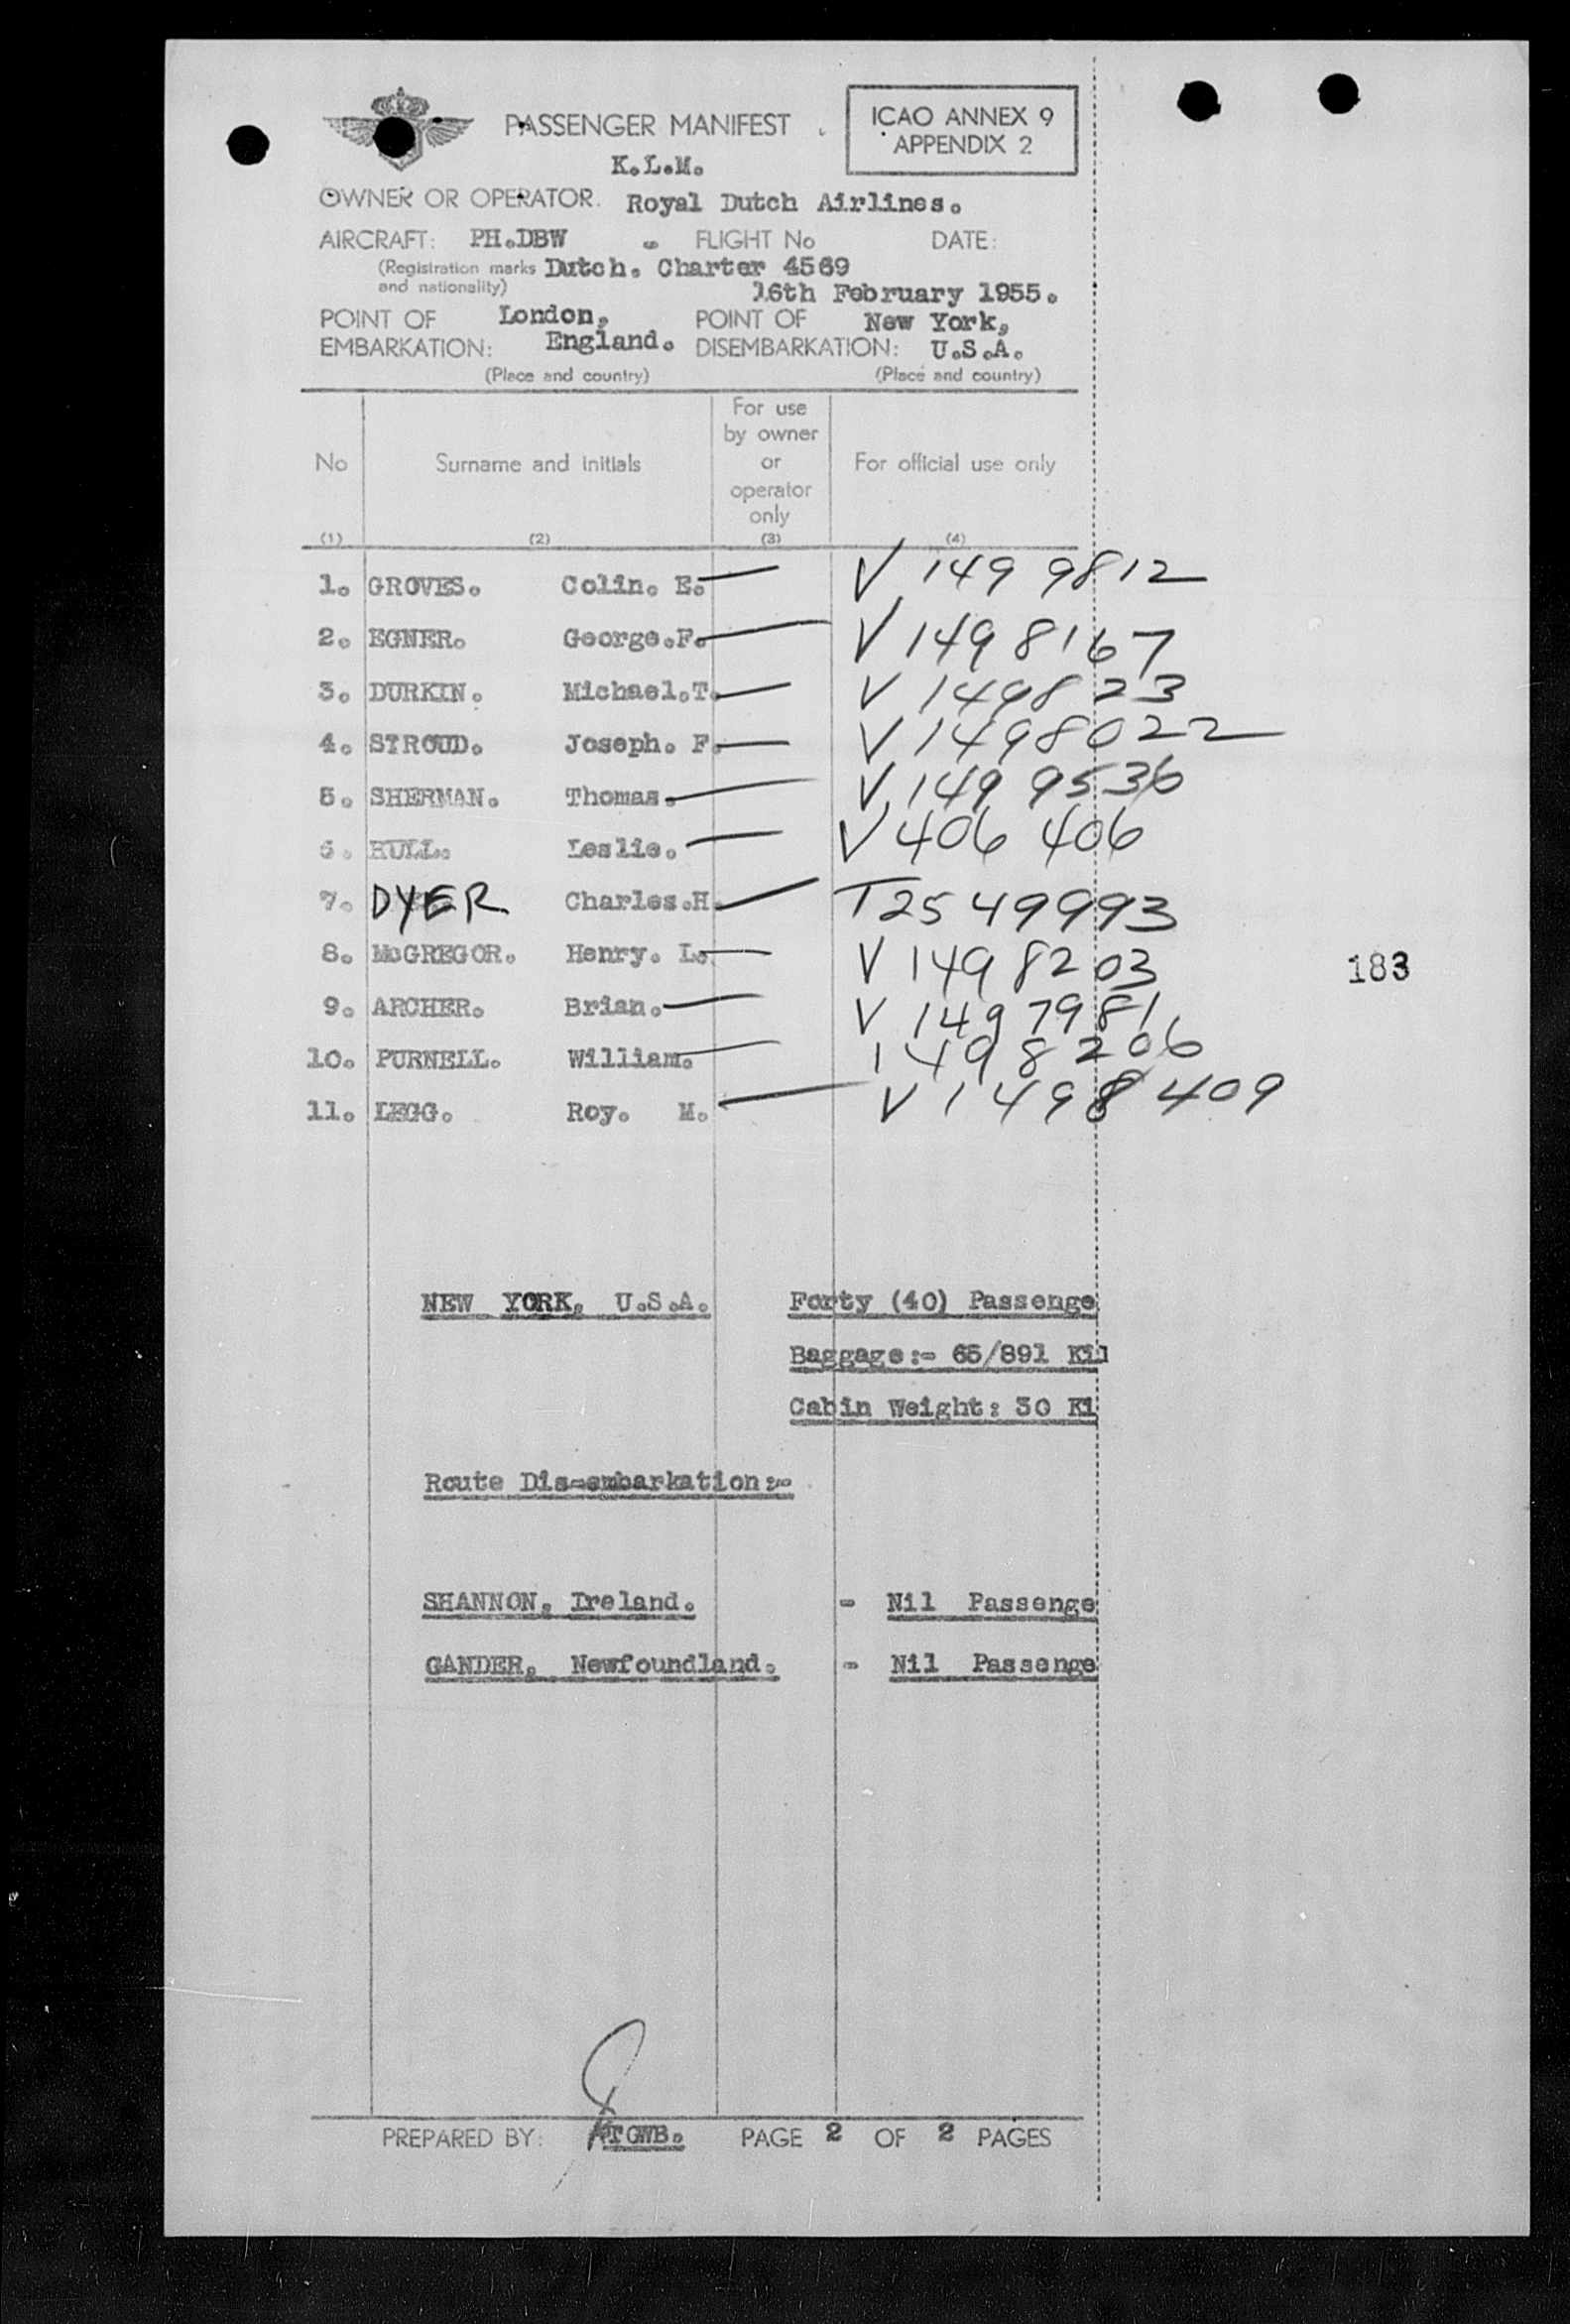 PASSENGER MANIFEST
ICAO ANNEX 9
APPENDIX 2
K.L.M.
OWNER OR OPERATOR. Royal Dutch Airlines.
AIRCRAFT: PH.DBW - FLIGHT No DATE:
(Registration marks and nationality) Dutch. Charter 4569
16th February 1955.
POINT OF EMBARKATION: London, England. POINT OF DISEMBARKATION: New York, U.S.A.
(Place and country) (Place and country)
No Surname and initials For use by owner or operator only For official use only
(1) (2) (3) (4)
1. GROVES. Colin. E. — V 149 9812
2. EGNER. George.F. — V 149 8167
3. DURKIN. Michael.T. — V 149823
4. STROUD. Joseph. F. — V 1498022
5. SHERMAN. Thomas. — V 149 9536
6. HULL. Leslie. — V 406 406
7. DYER Charles.H. — T 2549993
8. McGREGOR. Henry. L. — V 1498203
9. ARCHER. Brian. — V 1497981
10. PURNELL. William. — 1498206
11. LEGG. Roy. M. — V 1498409
183
NEW YORK, U.S.A. Forty (40) Passenge
Baggage:- 65/891 Kil
Cabin Weight: 30 Ki
Route Dis-embarkation:-
SHANNON, Ireland. - Nil Passenge
GANDER, Newfoundland. - Nil Passenge
PREPARED BY: TGWB. PAGE 2 OF 2 PAGES